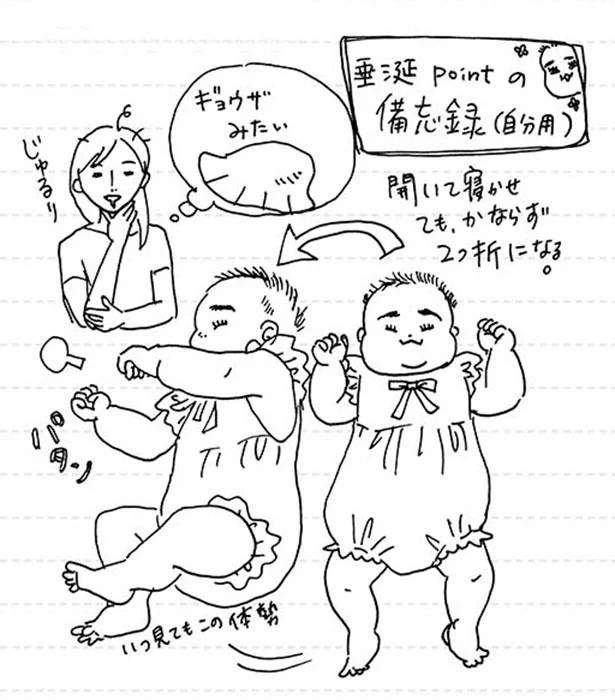 垂涎 pointの
備忘録(自分用)
ギョウザ
みたい
じゅるり
開いて寝かせ
ても、かならず
2つ折になる。
パタン
いつ見てもこの体勢